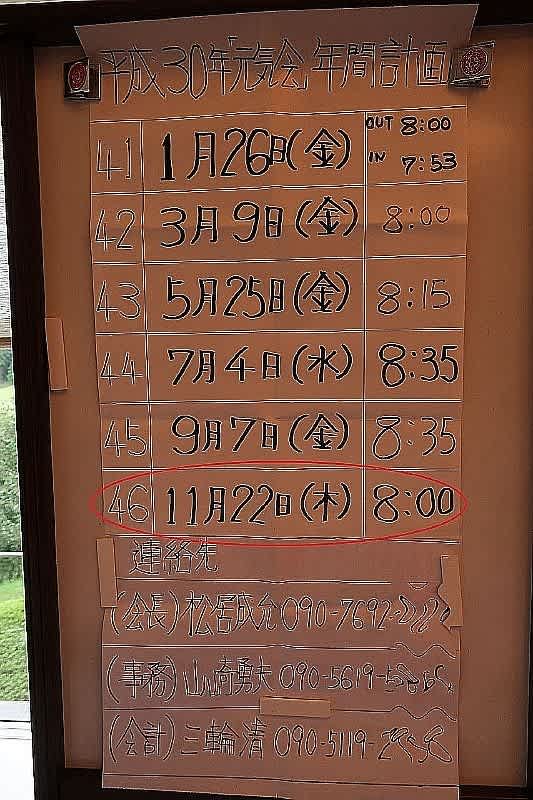 平成30年元気会年間計画
41 1月26日(金) OUT 8:00 IN 7:53
42 3月9日(金) 8:00
43 5月25日(金) 8:15
44 7月4日(水) 8:35
45 9月7日(金) 8:35
46 11月22日(木) 8:00
連絡先
(会長)松居成允 090-7692-
(事務)山崎勇夫 090-5619-
(会計)三輪清 090-5119-